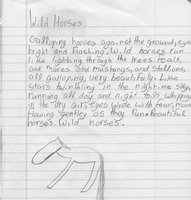 Wild Horses
Galloping hooves against the ground, eyes
bright and flashing, wild horses run
like lightning through the trees. Foals,
and mares and mustangs, and stallions,
all galloping, very beautifully. Like
stars twinkling in the nightime sky,
running all day and night tails whipping
in the dry air, eyes wide with fever, manes
flowing gently as they run. Beautiful
horses. Wild horses.